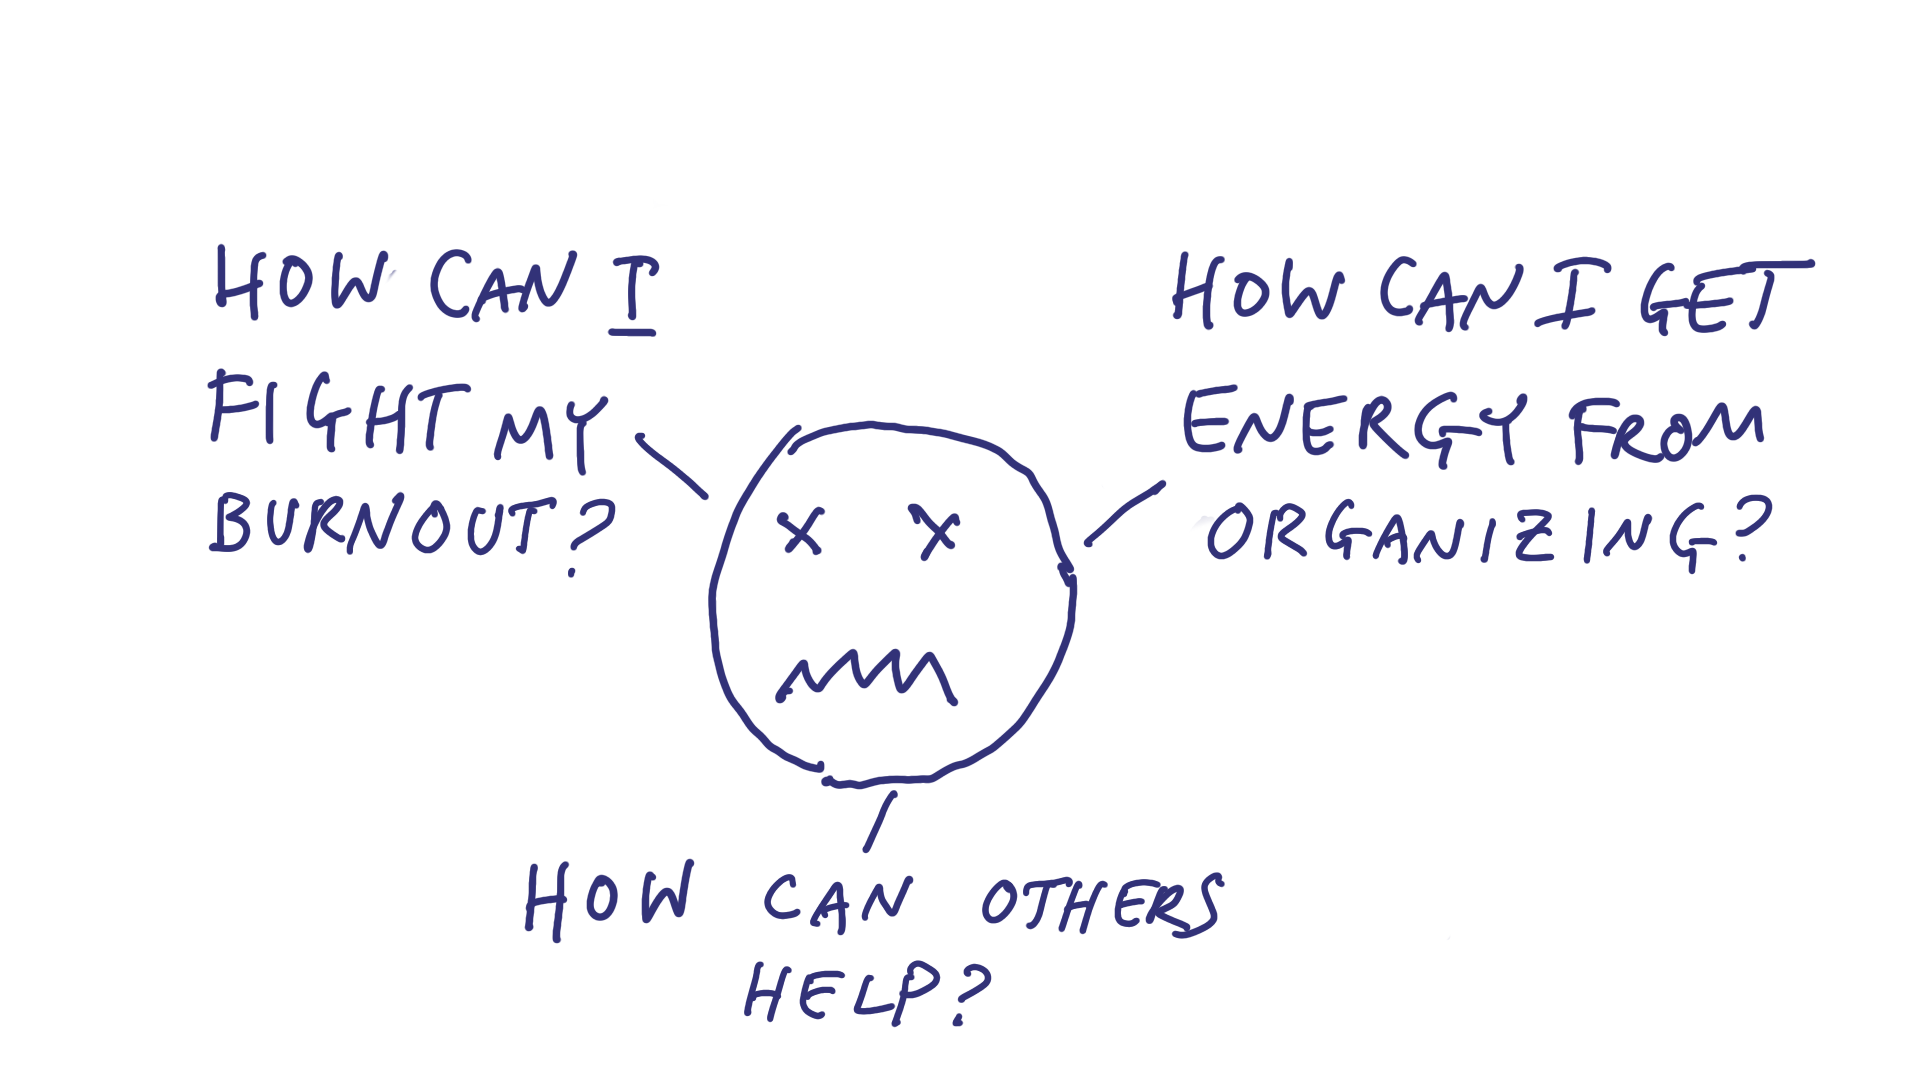 HOW CAN I
FIGHT MY
BURNOUT?
HOW CAN I GET
ENERGY FROM
ORGANIZING?
HOW CAN OTHERS
HELP?